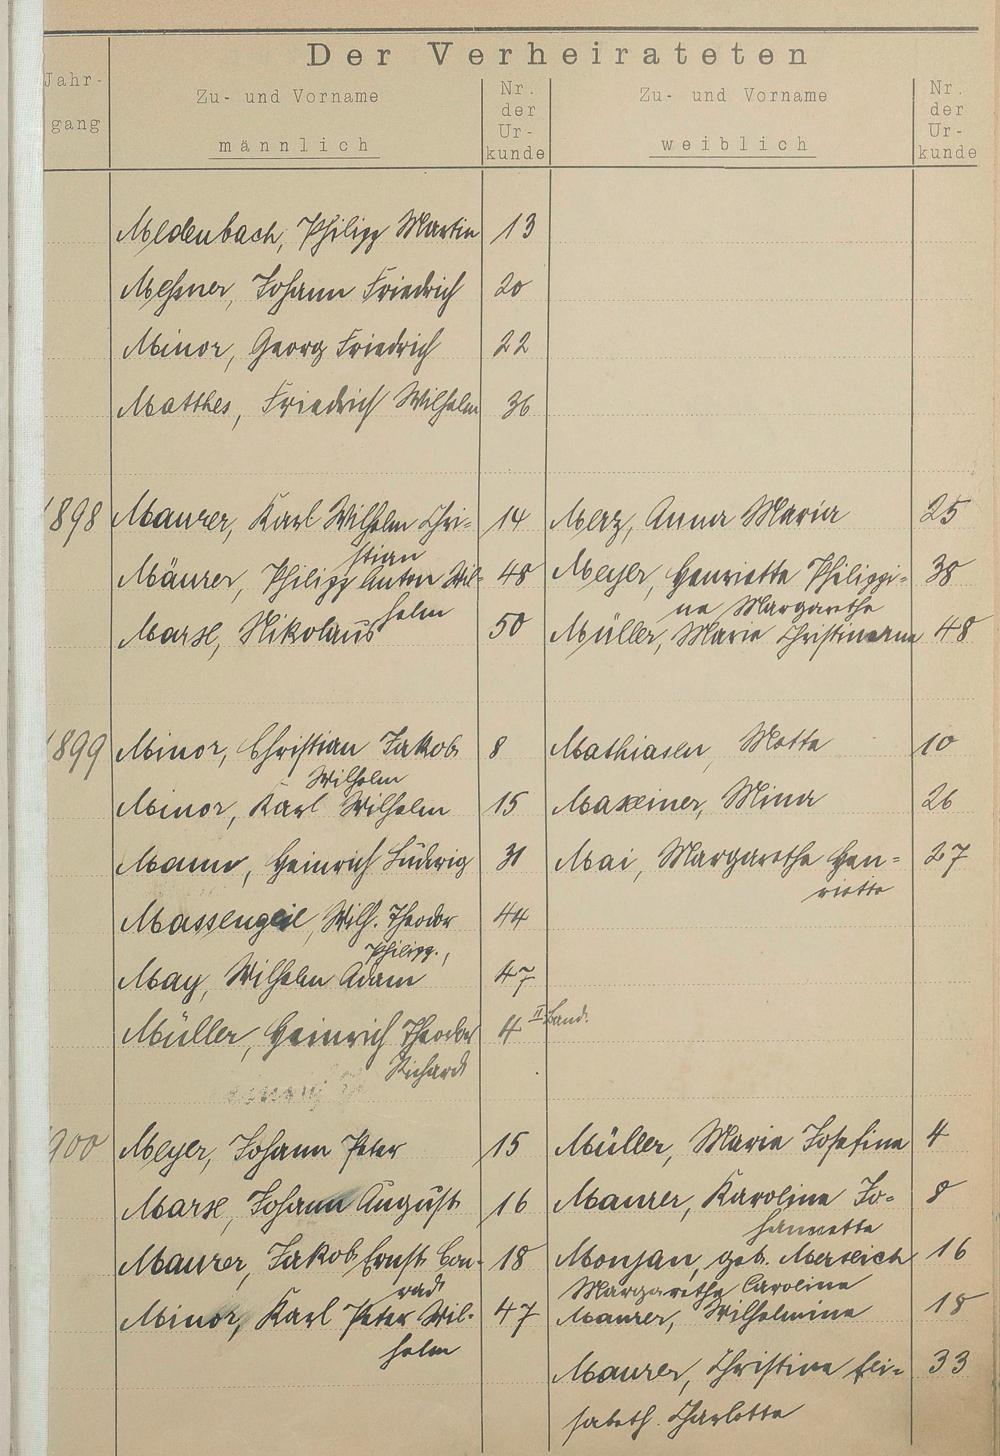 Der Verheirateten
Jahr-
gang
Zu- und Vorname
männlich
Nr.
der
Ur-
kunde
Zu- und Vorname
weiblich
Nr.
der
Ur-
kunde
Meldenbach, Philipp Martin 13
Meßner, Johann Friedrich 20
Minor, Georg Friedrich 22
Matthes, Friedrich Wilhelm 36
1898 Maurer, Karl Wilhelm Chri- 14 Merz, Anna Maria 25
stian
Mäurer, Philipp Anton Wil- 48 Meyer, Henriette Philippi- 38
helm
ne Margarethe
Marx, Nikolaus 50 Müller, Marie 48
1899 Minor, Christian Jakob 8 Mathiasen, 10
Wilhelm
Minor, Karl Wilhelm 15 Maxeiner, Mina 26
Mann, Heinrich Ludwig 31 Mai, Margarethe Hen- 27
riette
Massengeil, Wilh. Theodor 44
Philipp.,
May, Wilhelm Adam 47
Müller, Heinrich Theodor 4 II Band.
Richard
1900 Meyer, Johann Peter 15 Müller, Marie Josefine 4
Marx, Johann August 16 Maurer, Karoline Jo- 8
hannette
Maurer, Jakob Ernst Con- 18 Monjan, geb. 16
rad
Margarethe Caroline
Minor, Karl Peter Wil- 47 Maurer, Wilhelmine 18
helm
Maurer, Christine Eli- 33
sabeth Charlotte